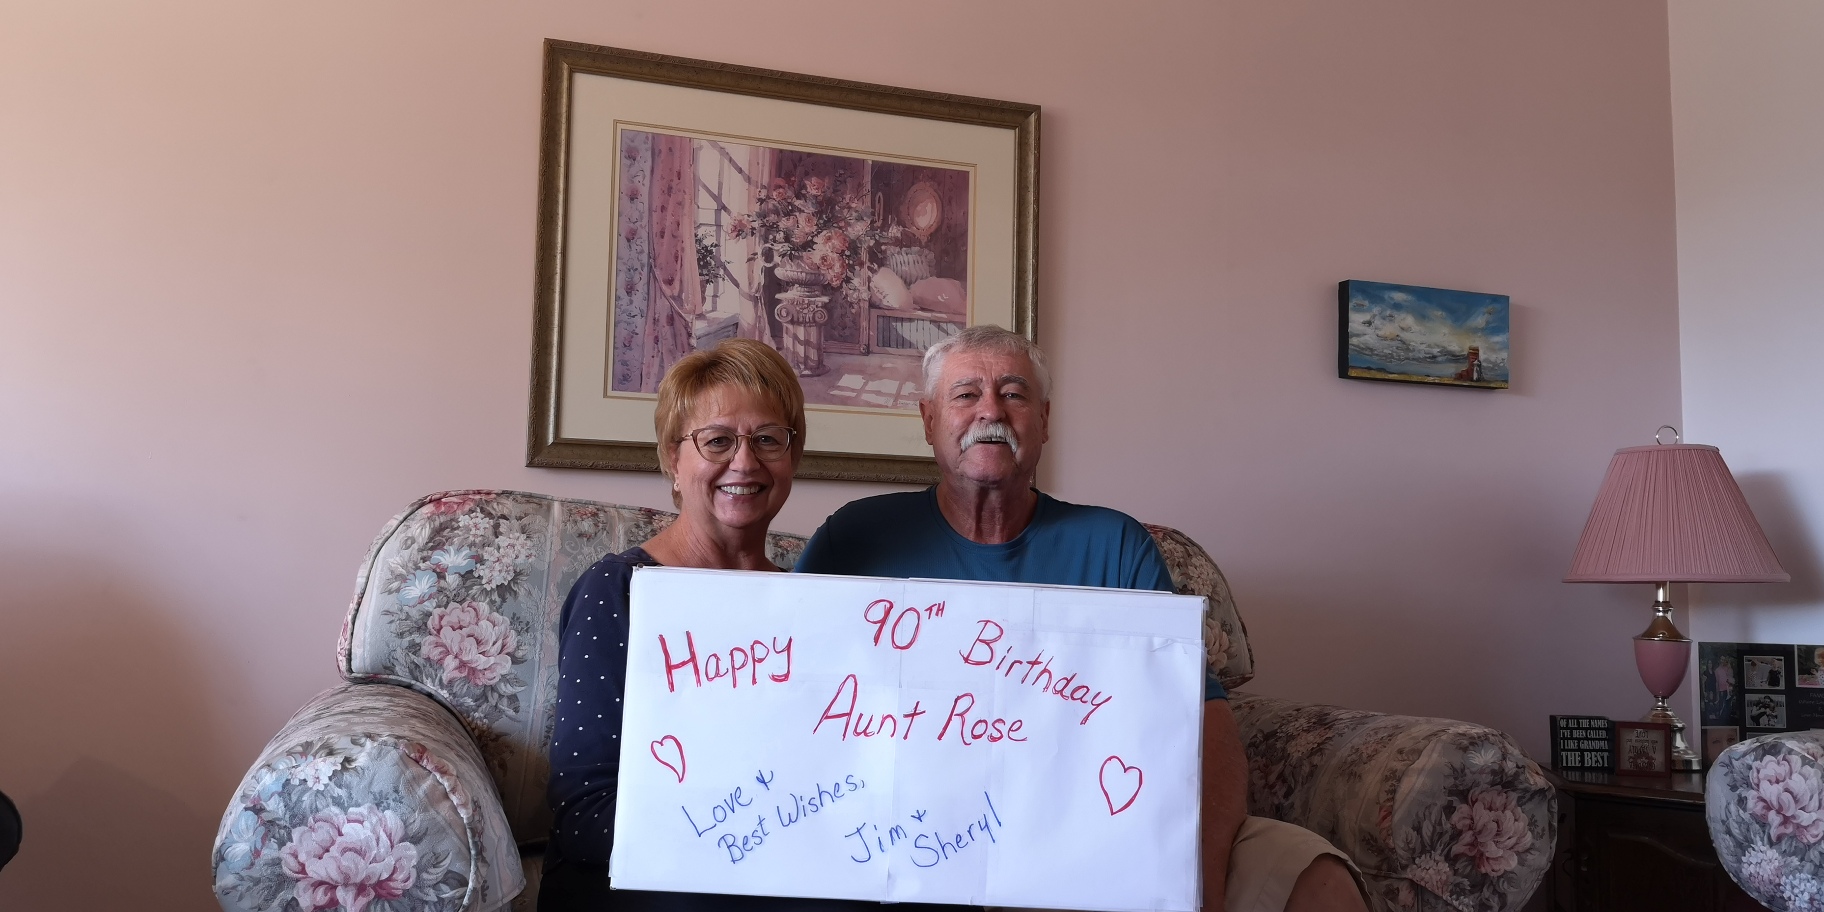 Happy 90TH Birthday
Aunt Rose
Love &
Best Wishes,
Jim &
Sheryl
OF ALL THE NAMES
I'VE BEEN CALLED
I LIKE GRANDMA
THE BEST